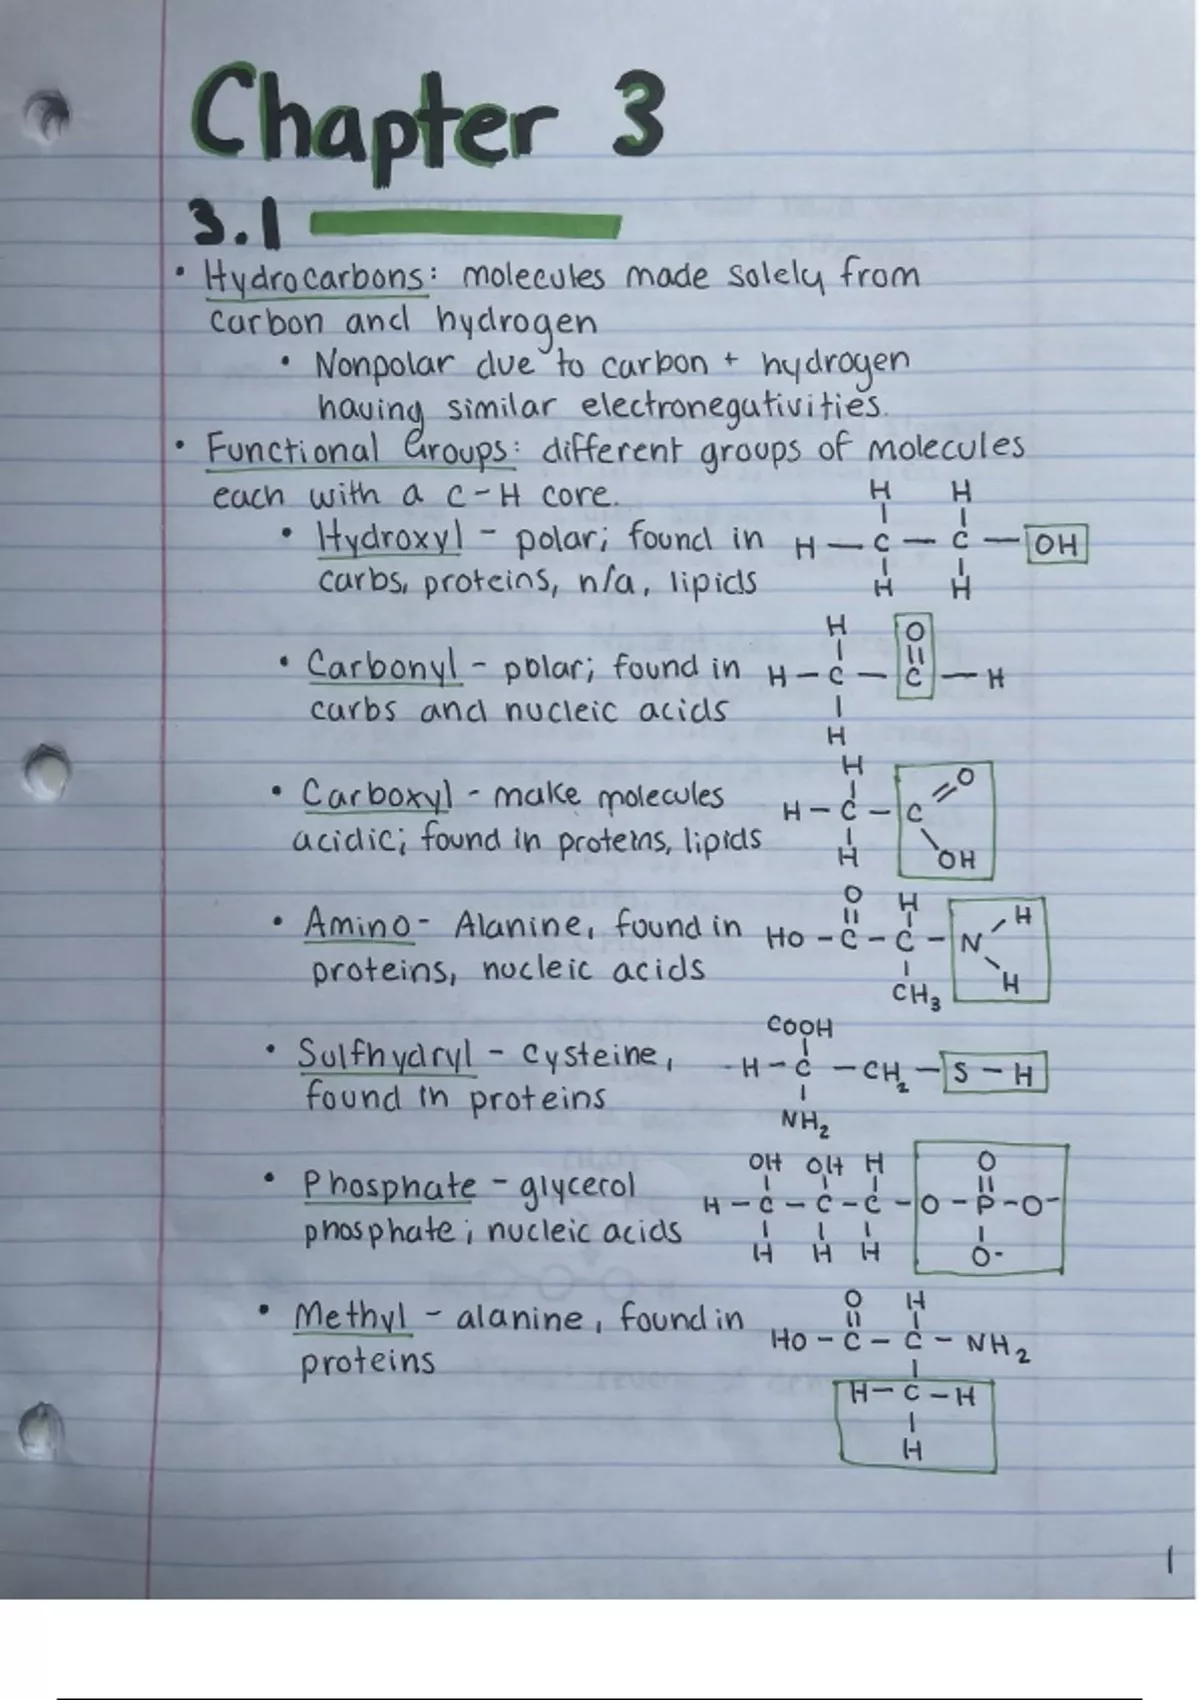 Chapter 3
3.1
• Hydrocarbons: molecules made solely from
carbon and hydrogen
• Nonpolar due to carbon + hydrogen
having similar electronegativities.
• Functional Groups: different groups of molecules
each with a C-H core.
H H
• Hydroxyl - polar; found in H — C — C — OH
carbs, proteins, n/a, lipids H H
H O
• Carbonyl - polar; found in H — C — C — H
carbs and nucleic acids
H
H O
• Carboxyl - make molecules H — C — C
acidic; found in proteins, lipids H OH
O H H
• Amino - Alanine, found in HO - C - C - N
proteins, nucleic acids CH3 H
COOH
• Sulfhydryl - cysteine, H - C - CH2 - S - H
found in proteins
NH2
OH OH H O
• Phosphate - glycerol H - C - C - C - O - P - O-
phosphate; nucleic acids H H H O-
O H
• Methyl - alanine, found in HO - C - C - NH2
proteins
H - C - H
H
1